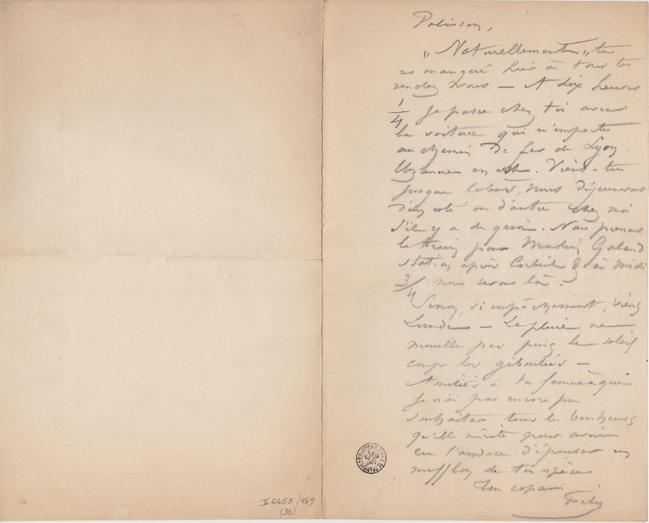 Polisson,
"Naturellement" tu
as manqué hier à tous tes
rendez vous — A dix heures
1/4 je passe chez toi avec
la voiture qui m'emporte
au chemin de fer de Lyon.
Uzanne en est. Viens-tu
jusque là bas, nous déjeunerons
d'un coté ou d'autre chez moi
s'il y a de quoi. Nous prenons
le train pour Moulin Galand
station après Corbeil & à midi
3/4 nous serons là.
Sinon, si empêchement, viens
Lundi — La pluie ne
mouille pas puis le soleil
coupe les giboulées —
Amitiés à ta femme à qui
je n'ai pas encore pu
souhaiter tous les bonheurs
qu'elle mérite pour avoir
eu l'audace d'épouser un
mufflon de ton espèce
Ton copain
Fély
II 6655/469
(30)